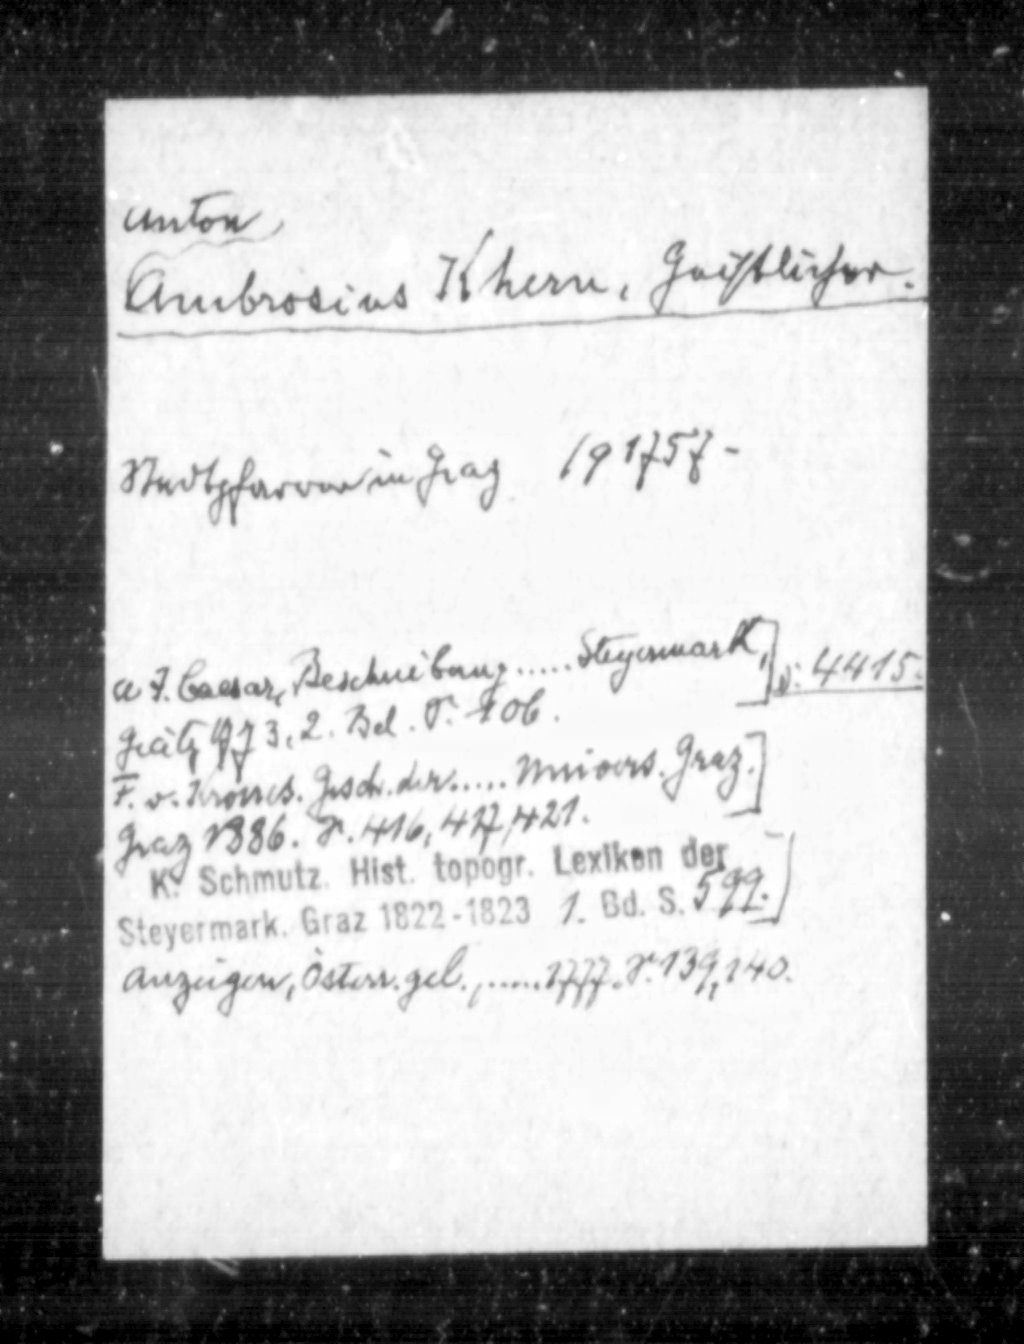 Anton
Ambrosius Khern, Geistlicher.
Stadtpfarrer in Graz 1757-
A. J. Caesar, Beschreibung ..... Steyermark,] S: 4415.
Grätz 1773, 2. Bd. S. 106.
F. v. Krones. Gesch. der ..... Univers. Graz.]
Graz 1886. S. 416, 417, 421.
K. Schmutz. Hist. topogr. Lexikon der
Steyermark. Graz 1822-1823 1. Bd. S. 599.]
Anzeigen, Österr. gel., ..... 1777. S. 139, 140.